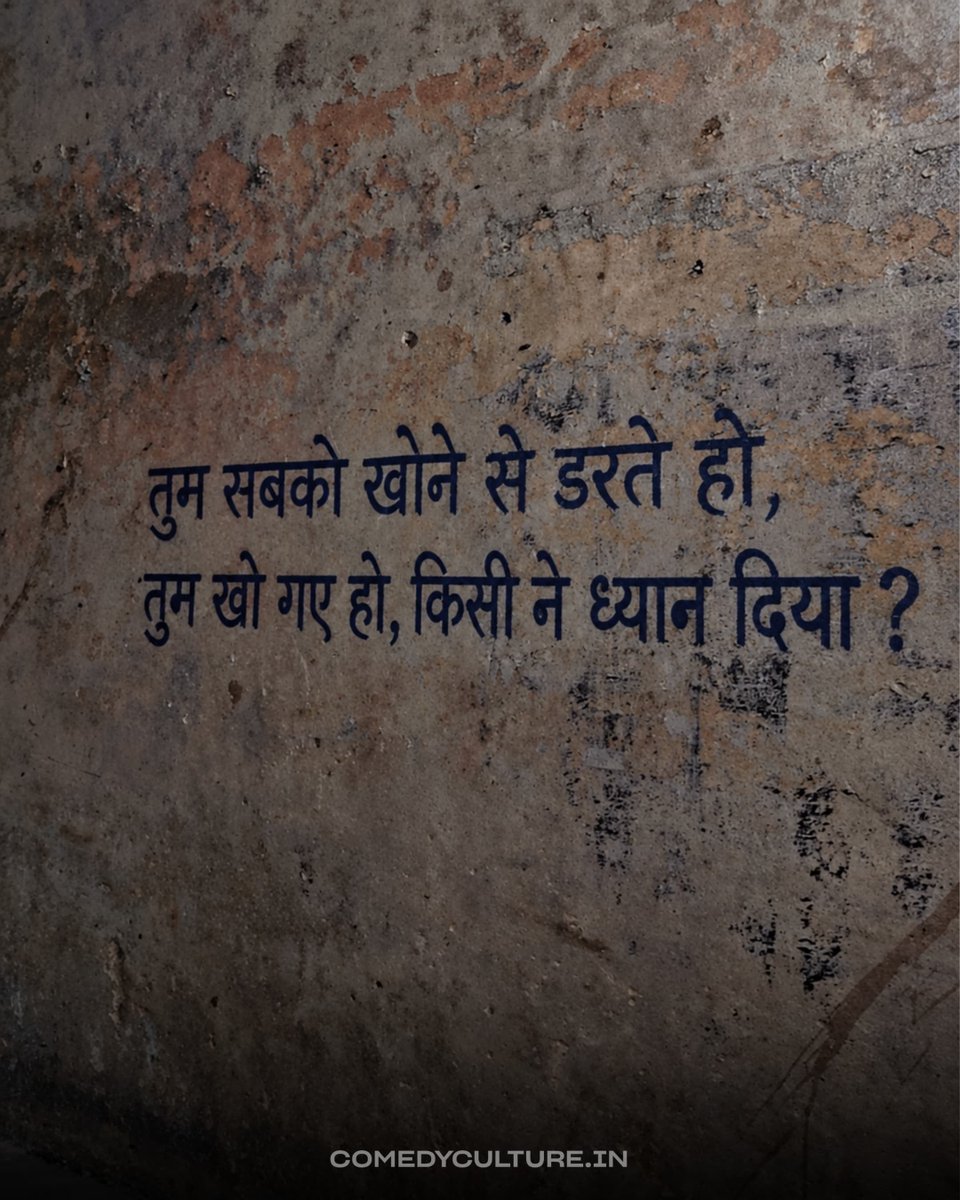 तुम सबको खोने से डरते हो,
तुम खो गए हो, किसी ने ध्यान दिया ?
COMEDYCULTURE.IN